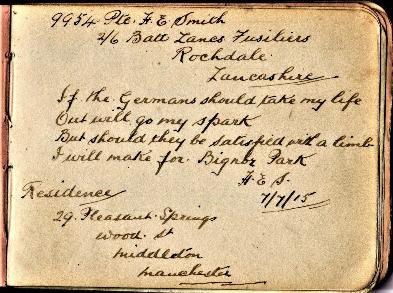 9954 Pte. H. E Smith
2/6 Batt Lancs Fusiliers
Rochdale.
Lancashire
If the Germans should take my life
Out will go my spark
But should they be satisfied with a limb
I will make for Bignor Park
H. E S.
7/7/15
Residence
29. Pleasant Springs
wood. st
middleton
manchester